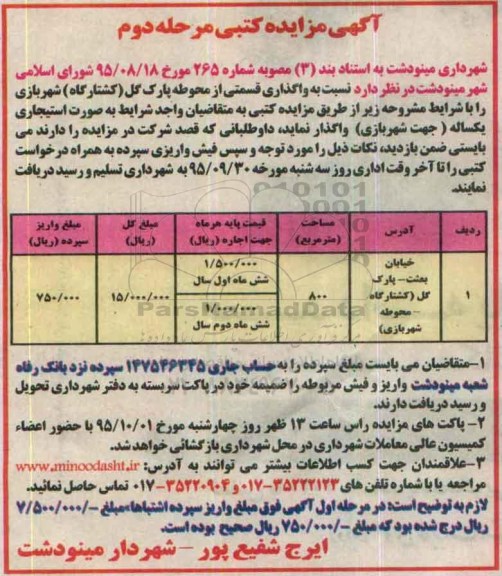 آگهی مزایده کتبی مرحله دوم
شهرداری مینودشت به استناد بند (۳) مصوبه شماره ۲۶۵ مورخ ۹۵/۰۸/۱۸ شورای اسلامی
شهر مینودشت در نظر دارد نسبت به واگذاری قسمتی از محوطه پارک گل (کشتارگاه) شهربازی
را با شرایط مشروحه زیر از طریق مزایده کتبی به متقاضیان واجد شرایط به صورت استیجاری
یکساله (جهت شهربازی) واگذار نماید، داوطلبانی که قصد شرکت در مزایده را دارند می
بایستی ضمن بازدید، نکات ذیل را مورد توجه و سپس فیش واریزی سپرده به همراه درخواست
کتبی را تا آخر وقت اداری روز سه شنبه مورخه ۹۵/۰۹/۳۰ به شهرداری تسلیم و رسید دریافت
نمایند.
ردیف آدرس مساحت (مترمربع) قیمت پایه هرماه جهت اجاره (ریال) مبلغ کل (ریال) مبلغ واریز سپرده (ریال)
۱ خیابان بعثت- پارک گل (کشتارگاه -محوطه شهربازی) ۸۰۰ ۱/۵۰۰/۰۰۰ شش ماه اول سال ۱۵/۰۰۰/۰۰۰ ۷۵۰/۰۰۰
شش ماه دوم سال
ParsNamadData
۱-متقاضیان می بایست مبلغ سپرده را به حساب جاری ۱۴۷۵۴۶۳۴۵ سپرده نزد بانک رفاه
شعبه مینودشت واریز و فیش مربوطه را ضمیمه خود در پاکت سربسته به دفتر شهرداری تحویل
و رسید دریافت دارند.
۲- پاکت های مزایده راس ساعت ۱۳ ظهر روز چهارشنبه مورخ ۹۵/۱۰/۰۱ با حضور اعضاء
کمیسیون عالی معاملات شهرداری در محل شهرداری بازگشائی خواهد شد.
۳-علاقمندان جهت کسب اطلاعات بیشتر می توانند به آدرس: www.minoodasht.ir
مراجعه یا با شماره تلفن های ۳۵۲۲۲۱۲۳-۰۱۷ و ۳۵۲۲۰۹۰۴-۰۱۷ تماس حاصل نمائید.
لازم به توضیح است: در مرحله اول آگهی فوق مبلغ واریز سپرده اشتباها مبلغ -/۷/۵۰۰/۰۰۰
ریال درج شده بود که مبلغ -/۷۵۰/۰۰۰ ریال صحیح بوده است.
ایرج شفیع پور - شهردار مینودشت